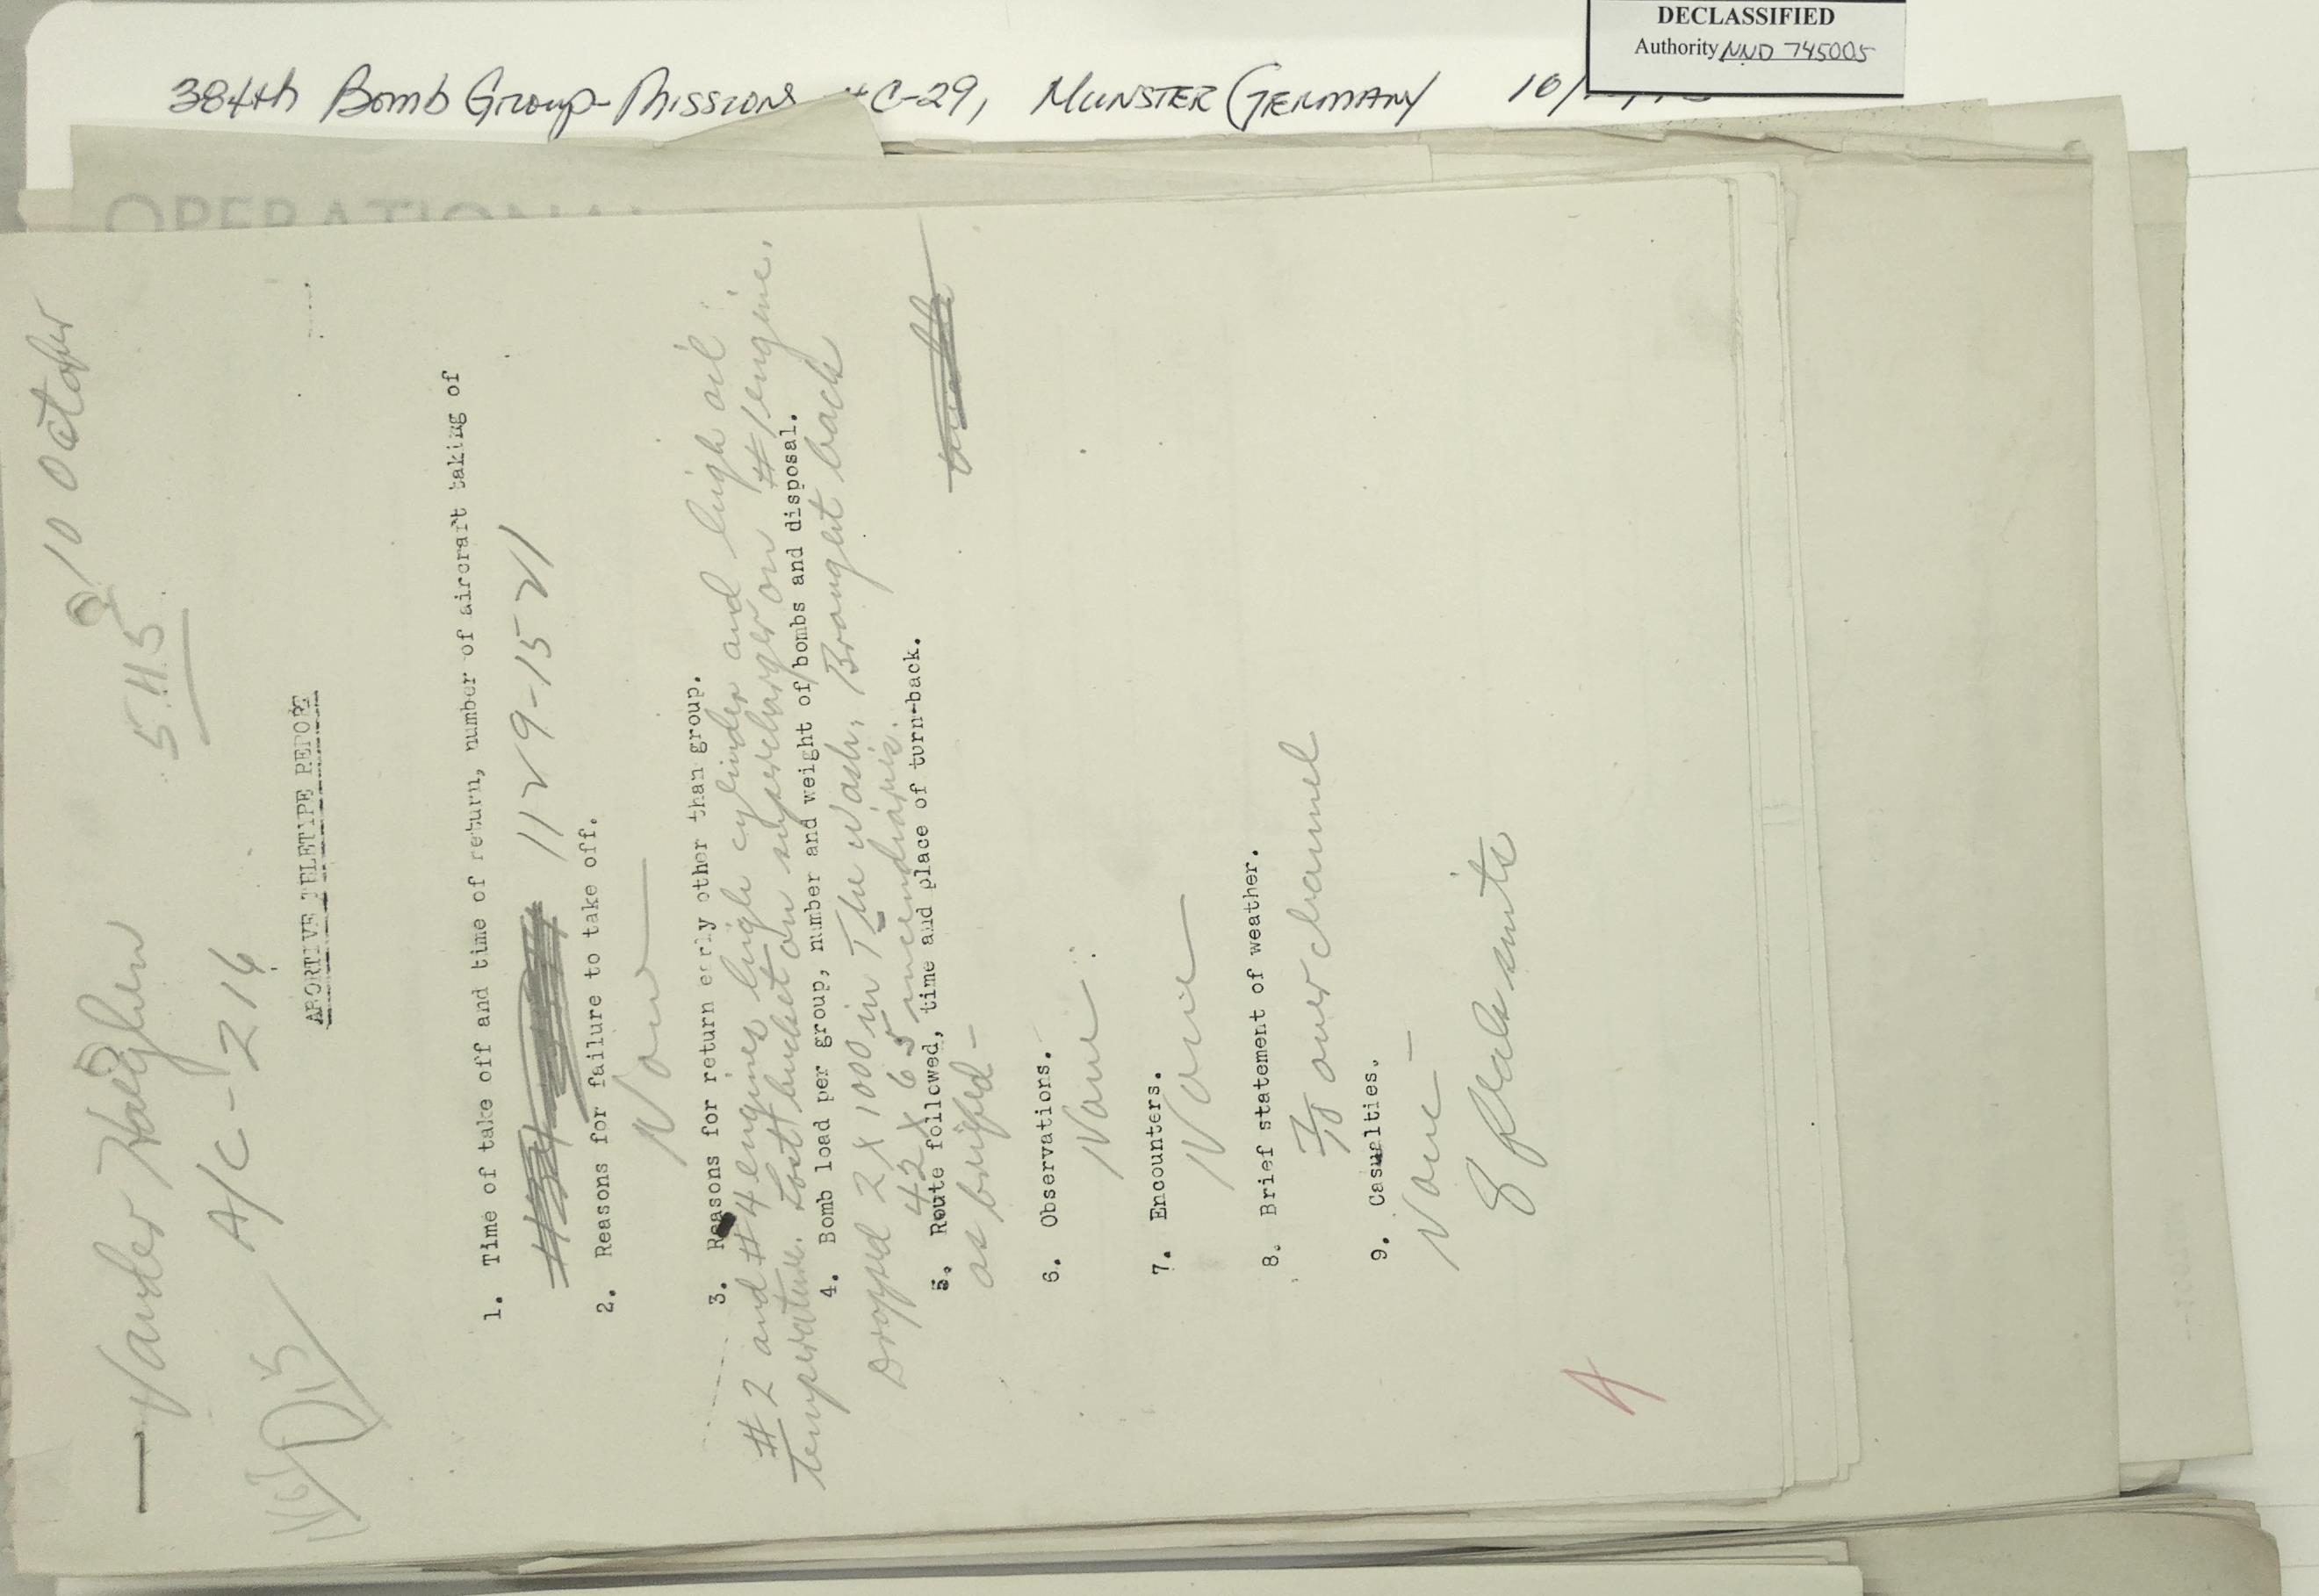 DECLASSIFIED
Authority NND 745005
384th Bomb Group-Missions #C-29, MUNSTER GERMANY 10/
OPERATIONAL
10 October
A/C - 214
ABORTIVE TELETYPE REPORT
1. Time of take off and time of return, number of aircraft taking of
1129-1521
2. Reasons for failure to take off.
None
3. Reasons for return early other than group.
#2 and #4 engines high cylinder and high oil
temperature. Lost bucket on supercharger on #1 engine.
4. Bomb load per group, number and weight of bombs and disposal.
Dropped 2 X 1000 in The Wash. Brought back
42 X 65 incendiaries.
5. Route followed, time and place of turn-back.
as briefed -
6. Observations.
None
7. Encounters.
None
8. Brief statement of weather.
over channel
9. Casualties.
None -
8 flak suits
A